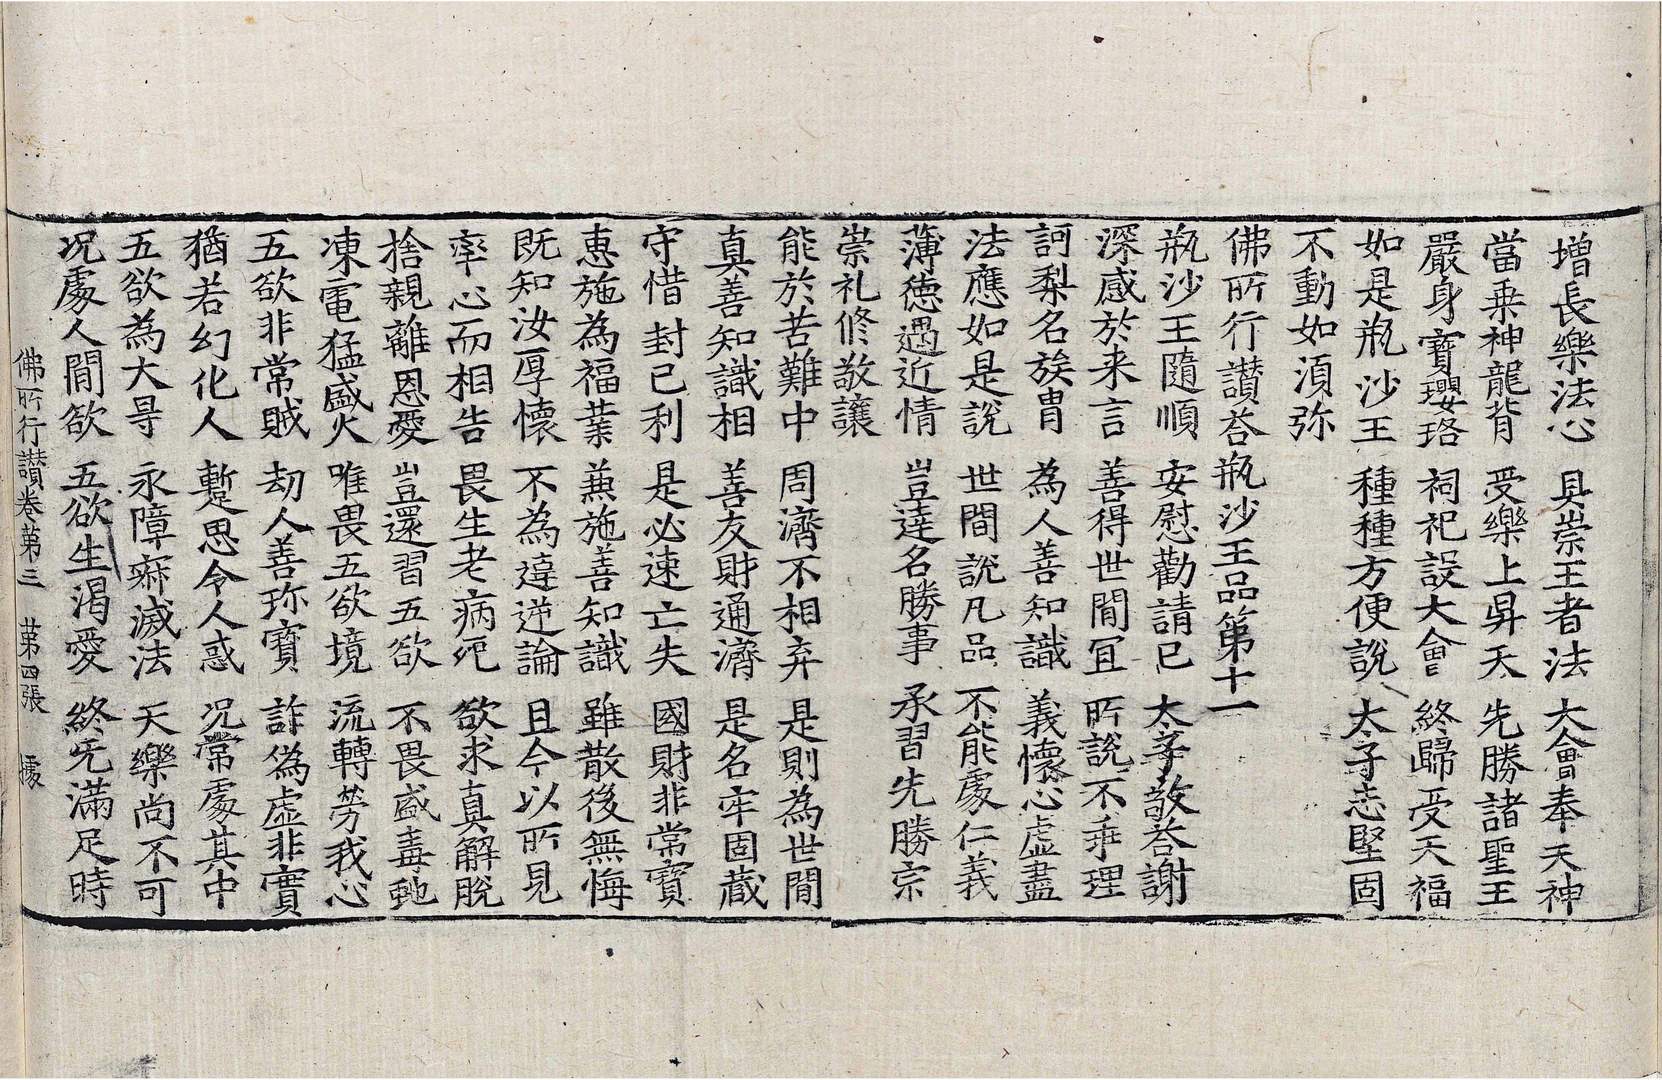 增長樂法心 具崇王者法 大會奉天神
當乗神龍背 受樂上昇天 先勝諸聖王
嚴身寶瓔珞 祠祀設大會 終歸受天福
如是瓶沙王 種種方便說 太子志堅固
不動如湏弥
佛所行讃荅瓶沙王品第十一
瓶沙王隨順 安慰勸請已 太子敬荅謝
深感於来言 善得世間冝 所說不乖理
訶梨名族胄 為人善知識 義懷心虛盡
法應如是說 世間說凡品 不能處仁義
薄德遇近情 豈達名勝事 承習先勝宗
崇礼修敬讓
能於苦難中 周濟不相弃 是則為世間
真善知識相 善友財通濟 是名牢固蔵
守惜封己利 是必速亡失 國財非常寶
惠施為福業 兼施善知識 雖散後無悔
既知汝厚懷 不為違逆論 且今以所見
率心而相告 畏生老病死 欲求真解脫
捨親離恩愛 豈還習五欲 不畏盛毒虵
凍電猛盛火 唯畏五欲境 流轉勞我心
五欲非常賊 劫人善珎寶 詐偽虛非實
猶若幻化人 暫思令人惑 况常處其中
五欲為大㝵 永障寂滅法 天樂尚不可
况處人間欲 五欲生渴愛 終无滿足時
佛所行讃卷第三 第四張 據